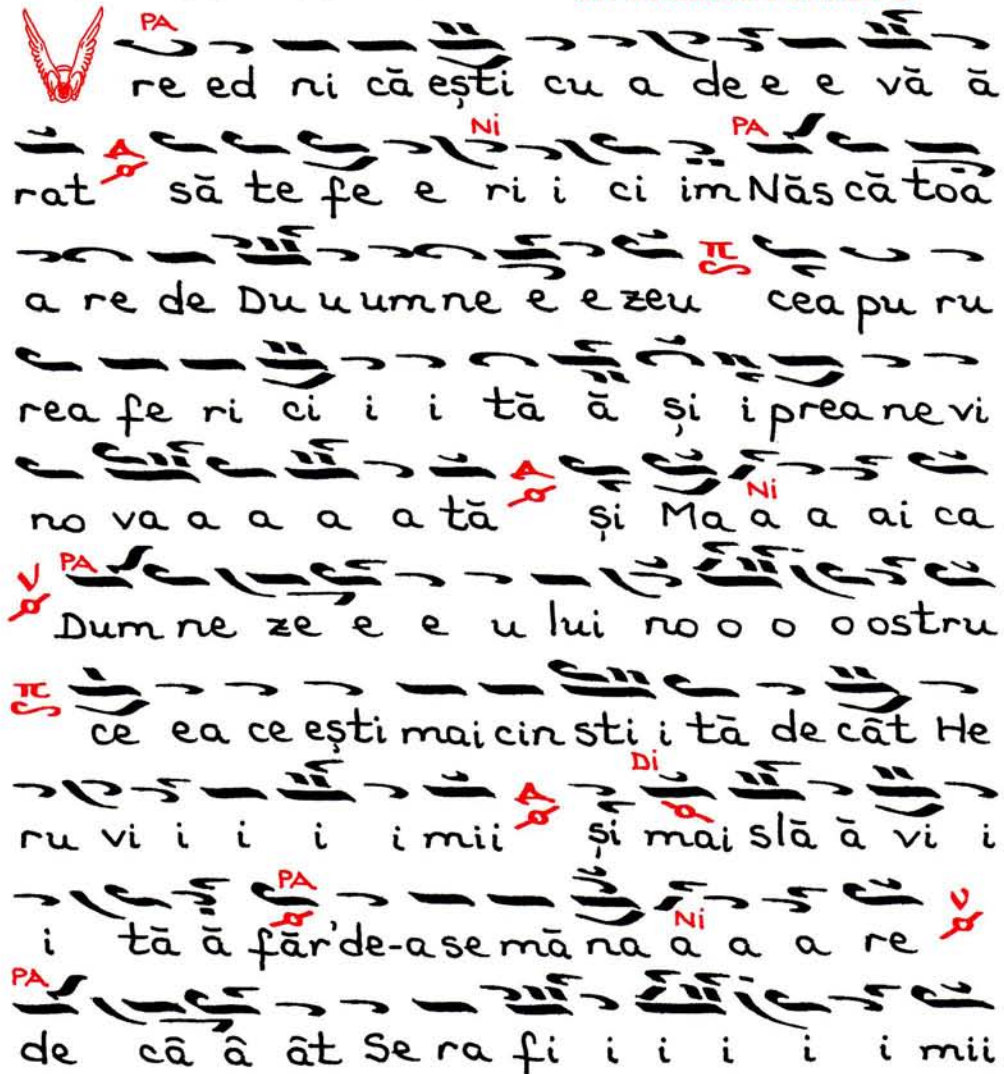 PA
re ed ni că ești cu a de e e vă ă
Ni PA
rat să te fe e ri i ci im Năs că toa
a re de Du u um ne e e zeu cea pu ru
rea fe ri ci i i tă ă și i prea ne vi
no va a a a a tă și Ma a a ai ca
Ni
PA
Dum ne ze e e u lui no o o o ostru
ce ea ce ești mai cin sti i tă de cât He
Di
ru vi i i i i mii și mai slă ă vi i
PA
i tă ă făr'de-a se mă na a a a re
Ni
PA
de câ â ât Se ra fi i i i i i mii